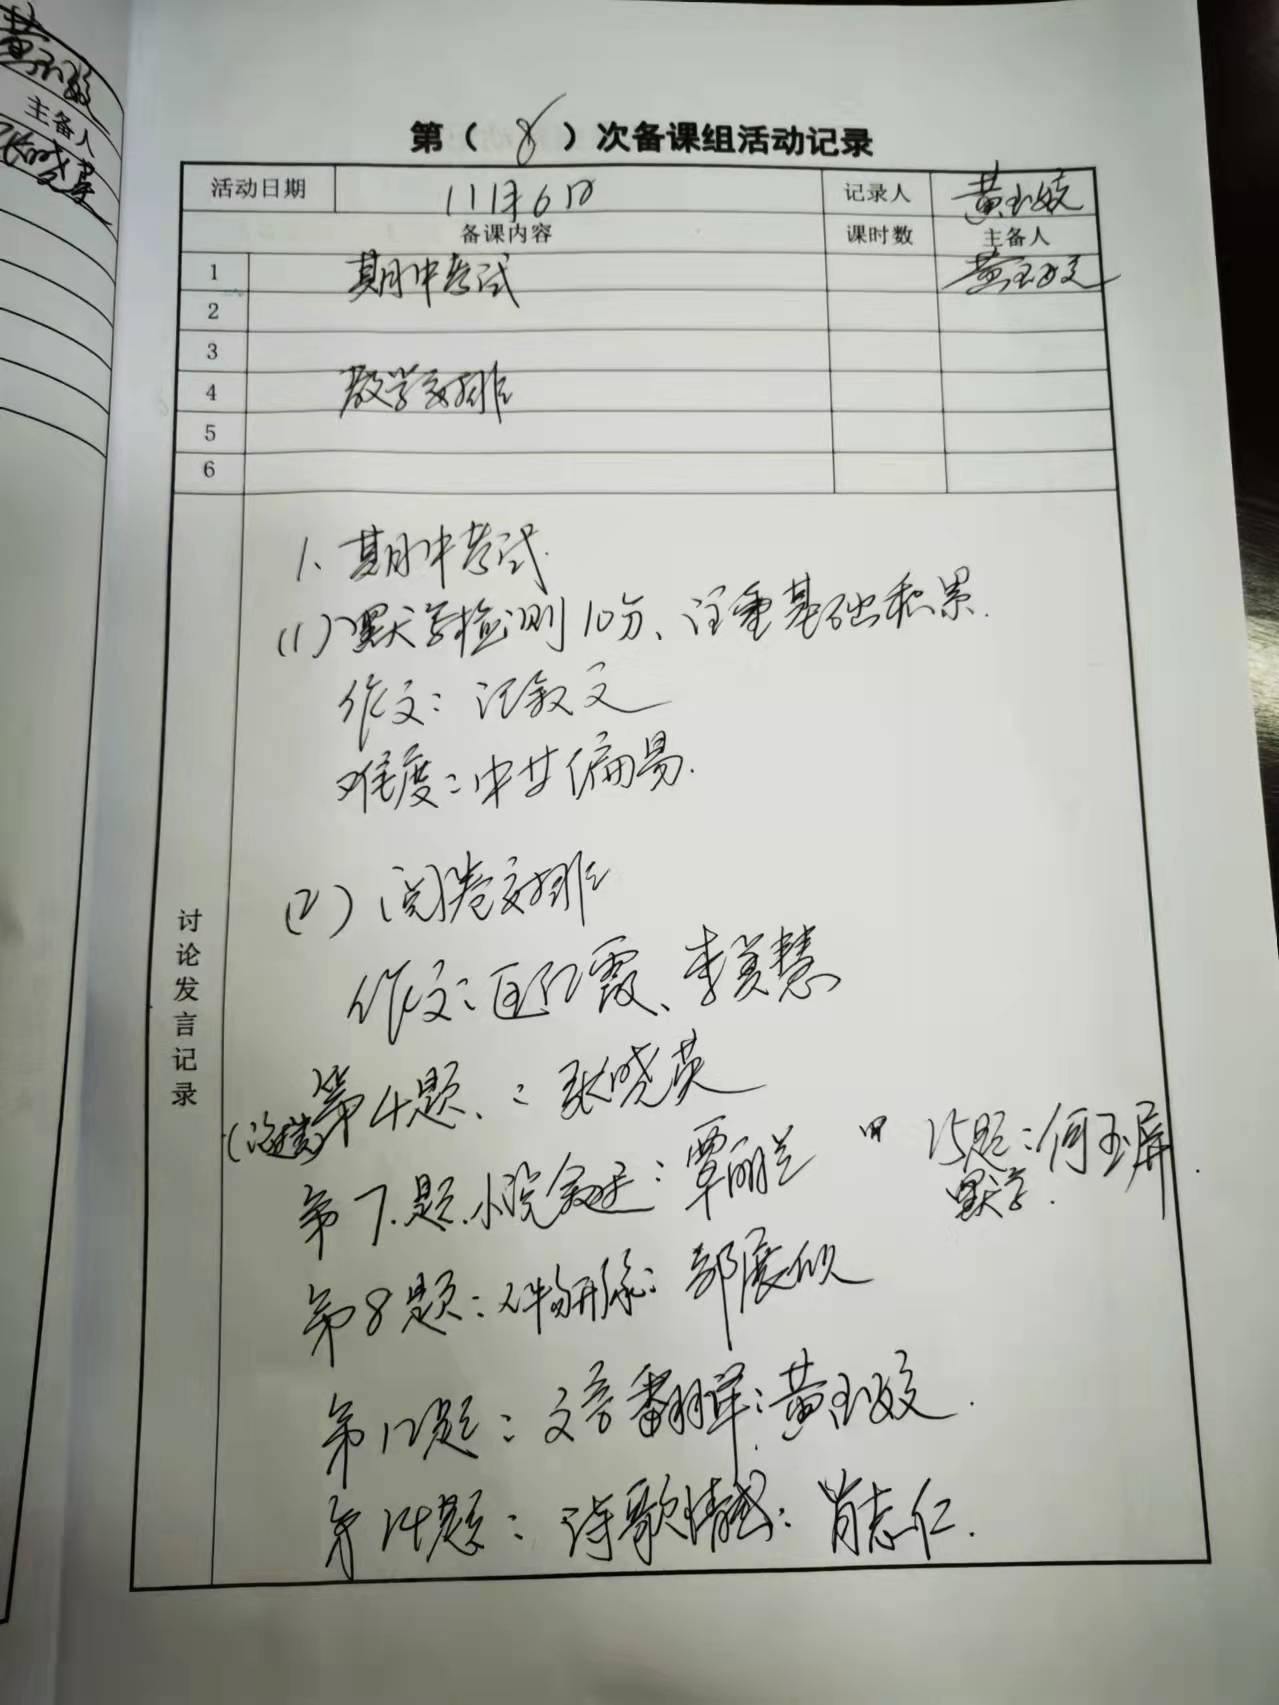 主备人
第（8）次备课组活动记录
活动日期 11月6日 记录人 黄玉姣
备课内容 课时数 主备人
1 期中考试 黄玉姣
2
3
4 教学安排
5
6
讨论发言记录
1、期中考试.
(1) 默写检测10分、注重基础积累.
作文：记叙文
难度：中等偏易.
(2) 阅卷安排
作文：匡红霞、李美慧
第4题、：张晓英
第7.题.小说叙述：覃丽兰
15题：何玉屏.
默写.
第8题：人物形象：郭展欣
第12题：文言翻译：黄玉姣.
第14题：诗歌情感：肖志仁.